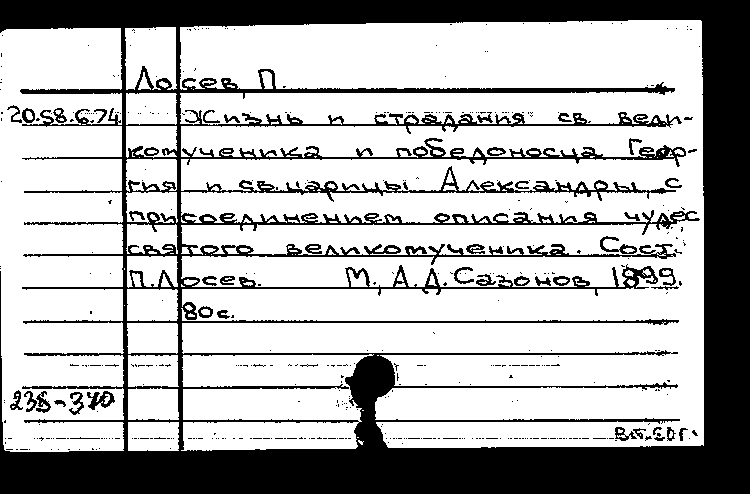 Лосев, П.
20.58.6.74. Жизнь и страдания св. вели-
комученика и победоносца Геор-
гия и св. царицы Александры, с
присоединением описания чудес
святого великомученика. Сост.
П. Лосев. М., А.Д. Сазонов, 1899.
80 с.